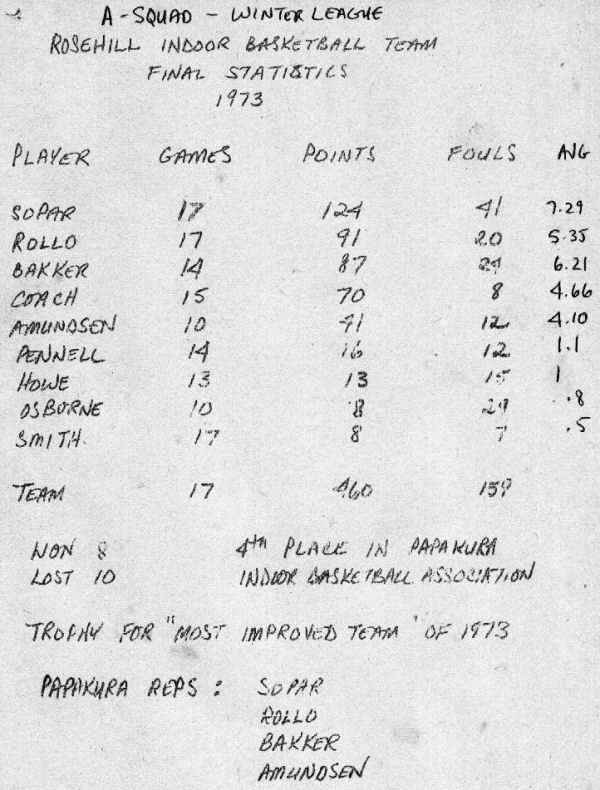 A-SQUAD - WINTER LEAGUE
ROSEHILL INDOOR BASKETBALL TEAM
FINAL STATISTICS
1973
PLAYER GAMES POINTS FOULS AVG
SOPAR 17 124 41 7.29
ROLLO 17 91 20 5.35
BAKKER 14 87 6.21
COACH 15 70 8 4.66
AMUNDSEN 10 41 12 4.10
PENNELL 14 16 12 1.1
HOWE 13 13 15 1
OSBORNE 10 8 .8
SMITH 17 8 7 .5
TEAM 17 460
WON 8 4TH PLACE IN PAPAKURA
LOST 10 INDOOR BASKETBALL ASSOCIATION
TROPHY FOR "MOST IMPROVED TEAM" OF 1973
PAPAKURA REPS : SOPAR
ROLLO
BAKKER
AMUNDSEN